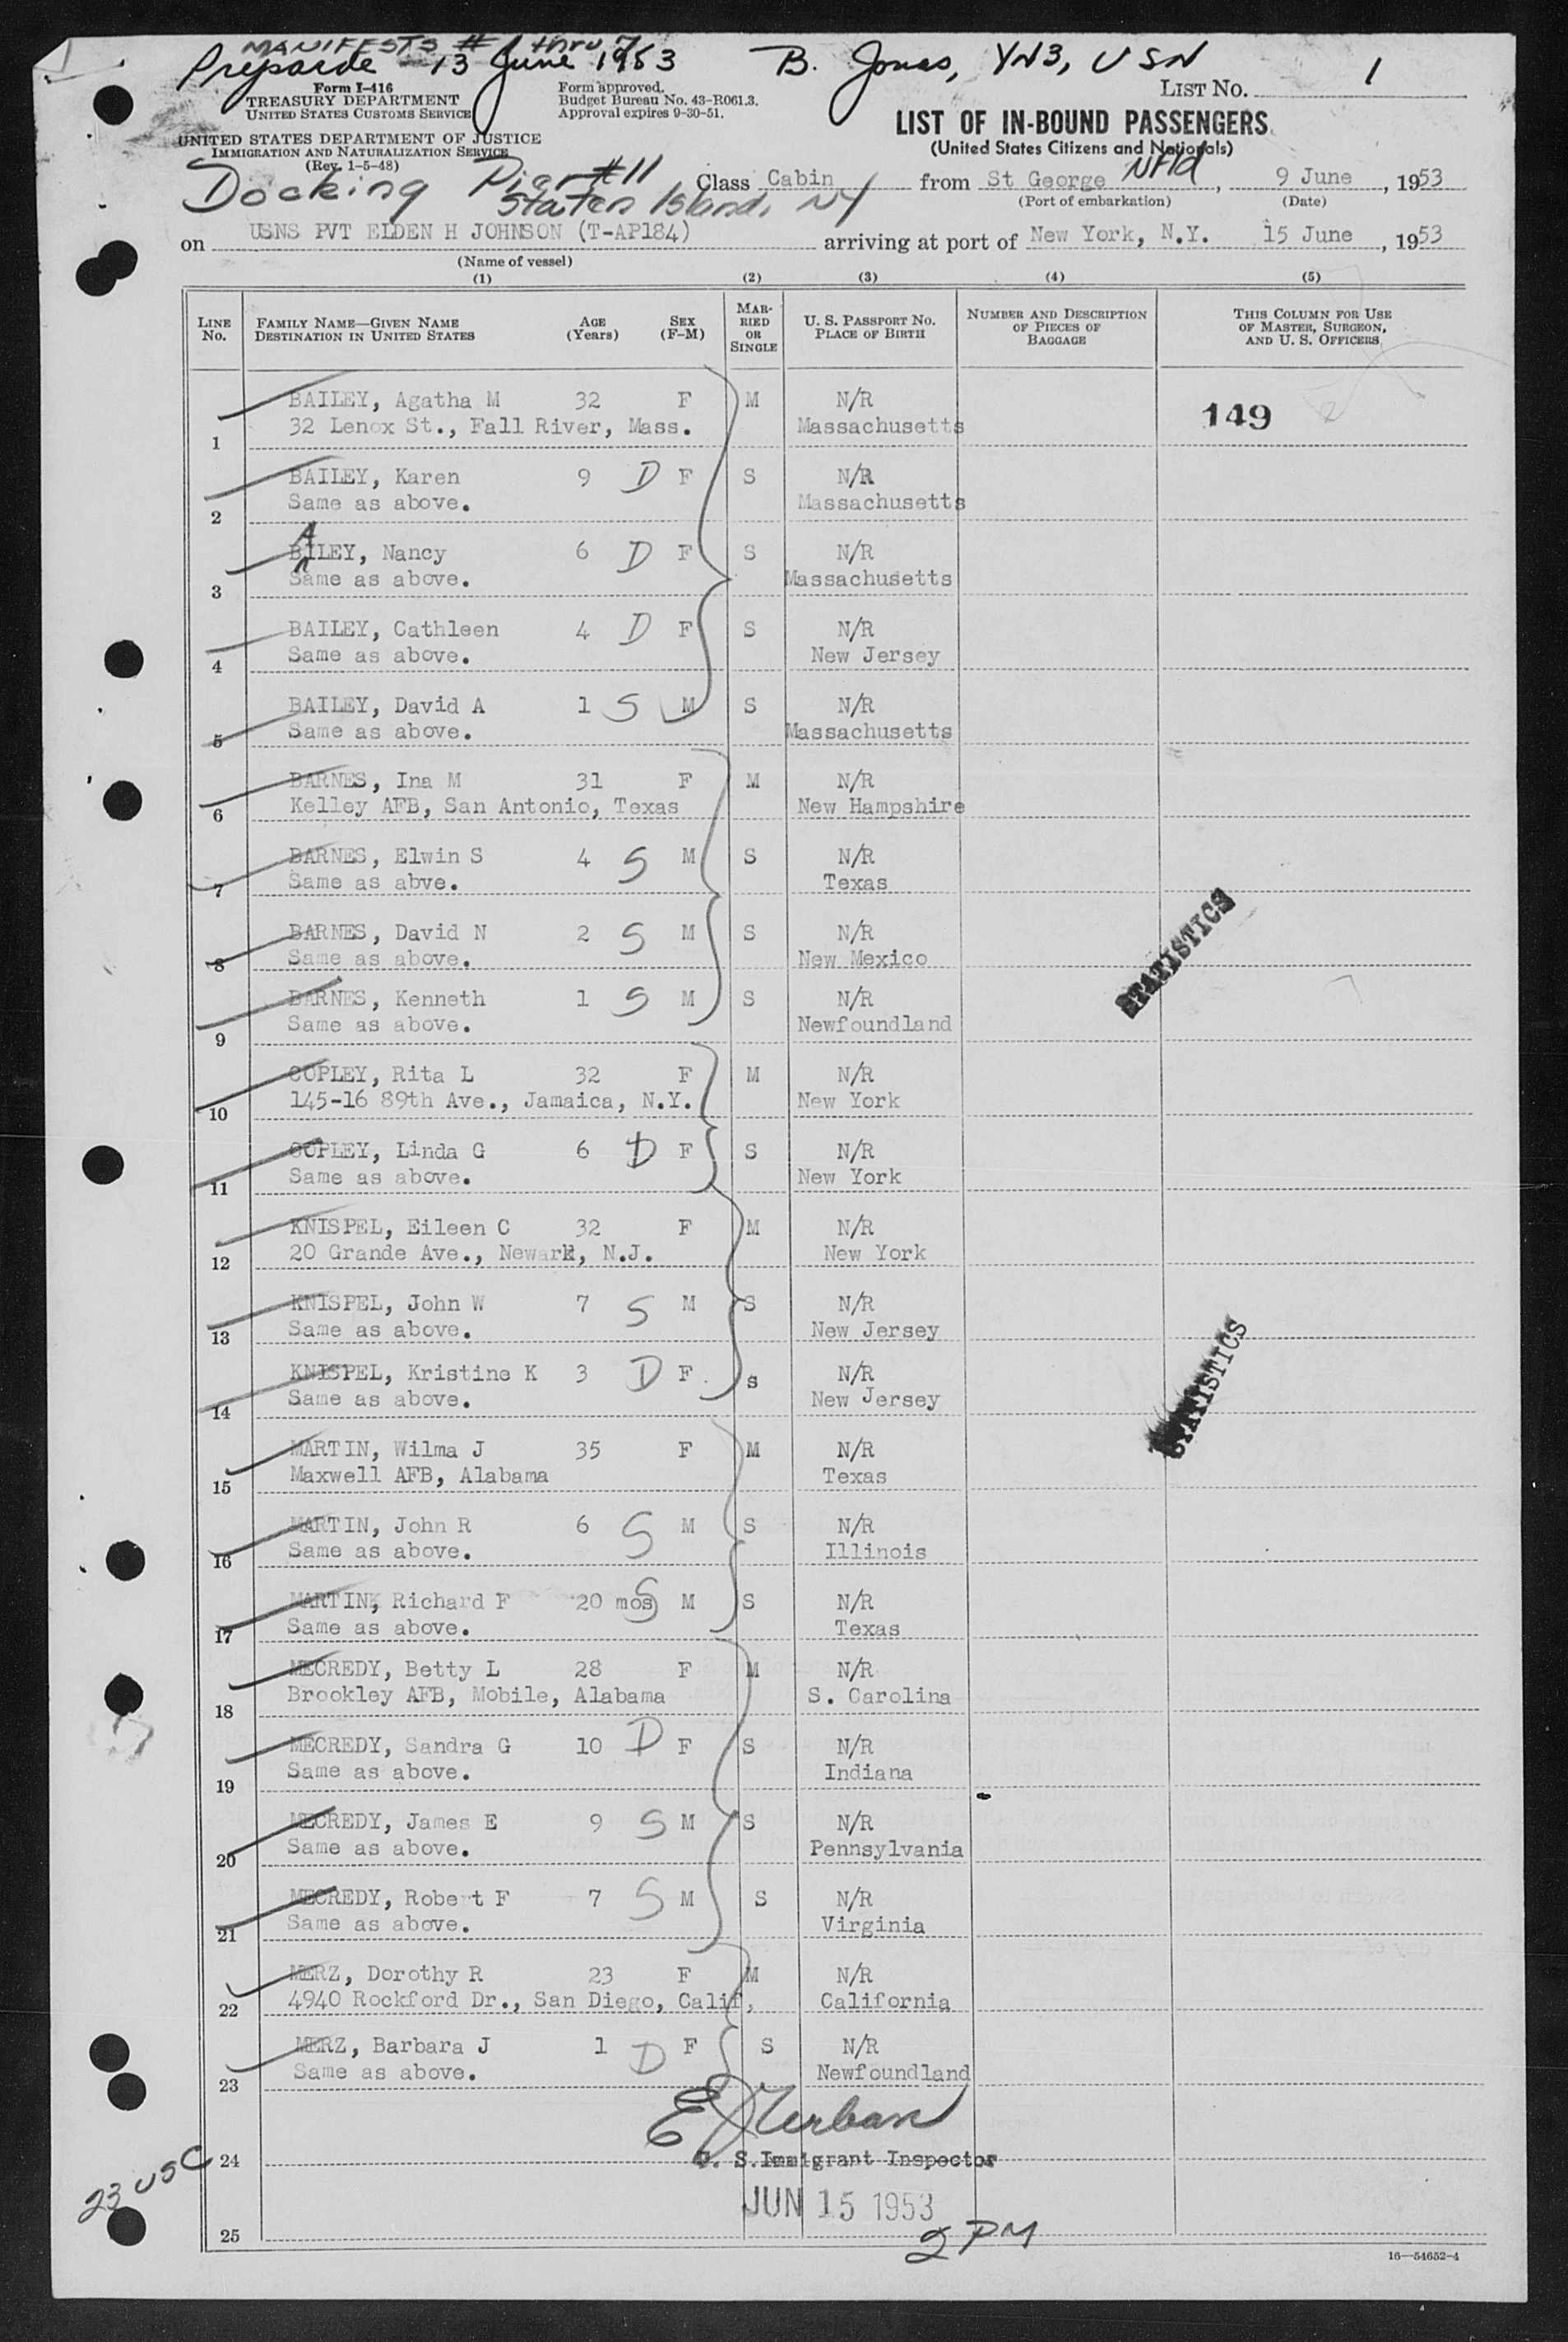 MANIFESTS # 1 thru 7
Preparde 13 June 1953 B. Jones, YN3, USN
Form I-416
TREASURY DEPARTMENT
UNITED STATES CUSTOMS SERVICE
Form approved.
Budget Bureau No. 43-R061.3.
Approval expires 9-30-51.
LIST No. 1
UNITED STATES DEPARTMENT OF JUSTICE
IMMIGRATION AND NATURALIZATION SERVICE
(Rev. 1-5-48)
LIST OF IN-BOUND PASSENGERS
(United States Citizens and Nationals)
Docking Pier #11
Staten Island, NY
Class Cabin from St George Nfld, 9 June, 1953
(Port of embarkation) (Date)
on USNS PVT ELDEN H JOHNSON (T-AP184) arriving at port of New York, N.Y. 15 June, 1953
(Name of vessel)
(1) (2) (3) (4) (5)
LINE No. FAMILY NAME—GIVEN NAME DESTINATION IN UNITED STATES AGE (Years) SEX (F-M) MARRIED OR SINGLE U. S. PASSPORT NO. PLACE OF BIRTH NUMBER AND DESCRIPTION OF PIECES OF BAGGAGE THIS COLUMN FOR USE OF MASTER, SURGEON, AND U. S. OFFICERS
BAILEY, Agatha M 32 F M N/R 149
1 32 Lenox St., Fall River, Mass. Massachusetts
BAILEY, Karen 9 D F S N/R
2 Same as above. Massachusetts
A
BILEY, Nancy 6 D F S N/R
3 Same as above. Massachusetts
BAILEY, Cathleen 4 D F S N/R
4 Same as above. New Jersey
BAILEY, David A 1 S M S N/R
5 Same as above. Massachusetts
BARNES, Ina M 31 F M N/R
6 Kelley AFB, San Antonio, Texas New Hampshire
BARNES, Elwin S 4 S M S N/R
7 Same as abve. Texas
BARNES, David N 2 S M S N/R
8 Same as above. New Mexico
STATISTICS
BARNES, Kenneth 1 S M S N/R
9 Same as above. Newfoundland
COPLEY, Rita L 32 F M N/R
10 145-16 89th Ave., Jamaica, N.Y. New York
COPLEY, Linda G 6 D F S N/R
11 Same as above. New York
KNISPEL, Eileen C 32 F M N/R
12 20 Grande Ave., Newark, N.J. New York
KNISPEL, John W 7 S M S N/R
13 Same as above. New Jersey
KNISPEL, Kristine K 3 D F S N/R
14 Same as above. New Jersey
STATISTICS
MARTIN, Wilma J 35 F M N/R
15 Maxwell AFB, Alabama Texas
MARTIN, John R 6 S M S N/R
16 Same as above. Illinois
MARTIN, Richard F 20 mos S M S N/R
17 Same as above. Texas
MECREDY, Betty L 28 F M N/R
18 Brookley AFB, Mobile, Alabama S. Carolina
MECREDY, Sandra G 10 D F S N/R
19 Same as above. Indiana
MECREDY, James E 9 S M S N/R
20 Same as above. Pennsylvania
MECREDY, Robert F 7 S M S N/R
21 Same as above. Virginia
MERZ, Dorothy R 23 F M N/R
22 4940 Rockford Dr., San Diego, Calif, California
MERZ, Barbara J 1 D F S N/R
23 Same as above. Newfoundland
24 U. S. Immigrant Inspector
23 USC
JUN 15 1953
25 2 PM
16—54652-4